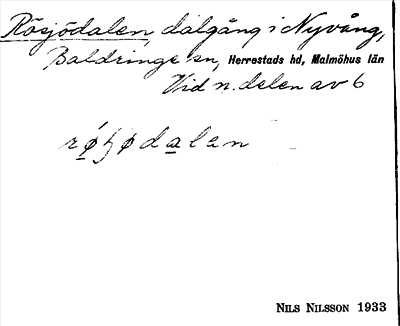 Rösjödalen, dalgång i Nyvång,
Baldringe sn, Herrestads hd, Malmöhus län
Vid n. delen av 6
NILS NILSSON 1933